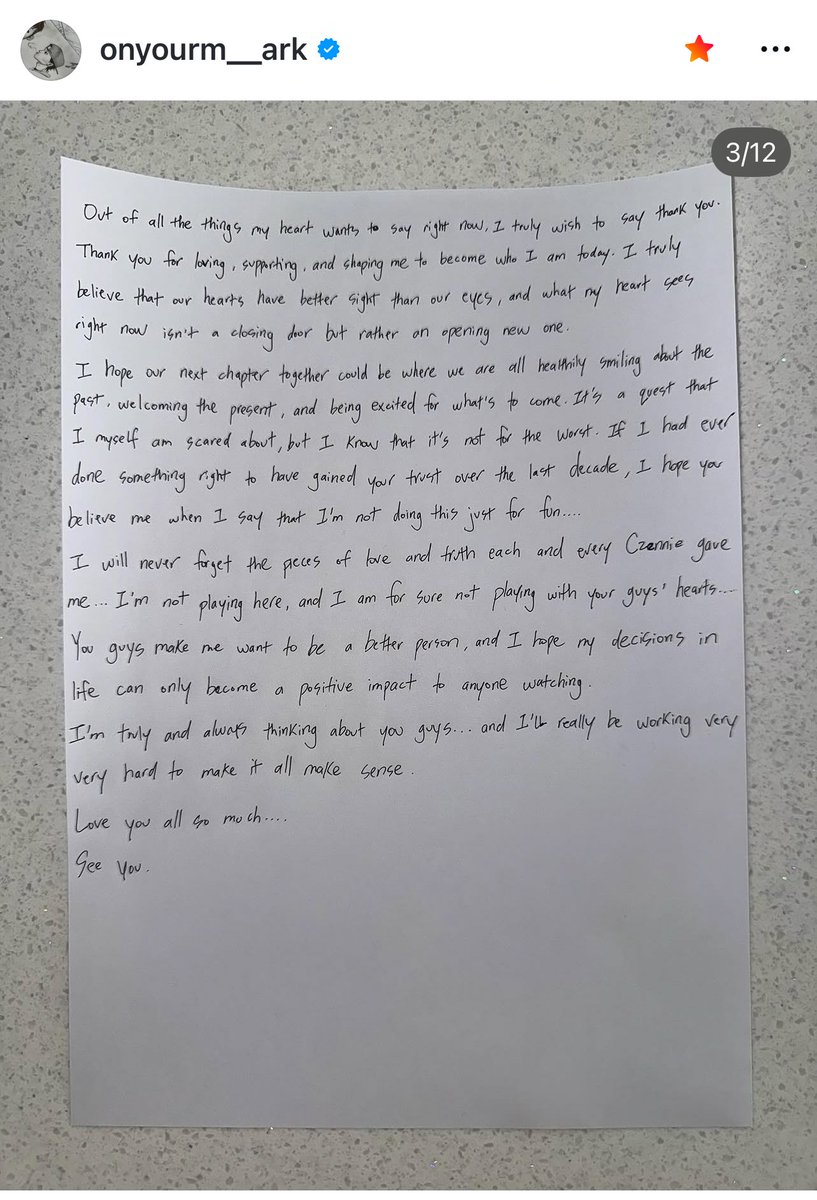 onyourm__ark
3/12
Out of all the things my heart wants to say right now, I truly wish to say thank you.
Thank you for loving, supporting, and shaping me to become who I am today. I truly
believe that our hearts have better sight than our eyes, and what my heart sees
right now isn't a closing door but rather an opening new one.
I hope our next chapter together could be where we are all healthily smiling about the
past, welcoming the present, and being excited for what's to come. It's a quest that
I myself am scared about, but I know that it's not for the worst. If I had ever
done something right to have gained your trust over the last decade, I hope you
believe me when I say that I'm not doing this just for fun....
I will never forget the pieces of love and truth each and every Czennie gave
me... I'm not playing here, and I am for sure not playing with your guys' hearts....
You guys make me want to be a better person, and I hope my decisions in
life can only become a positive impact to anyone watching.
I'm truly and always thinking about you guys... and I'll really be working very
very hard to make it all make sense.
Love you all so much....
See you.